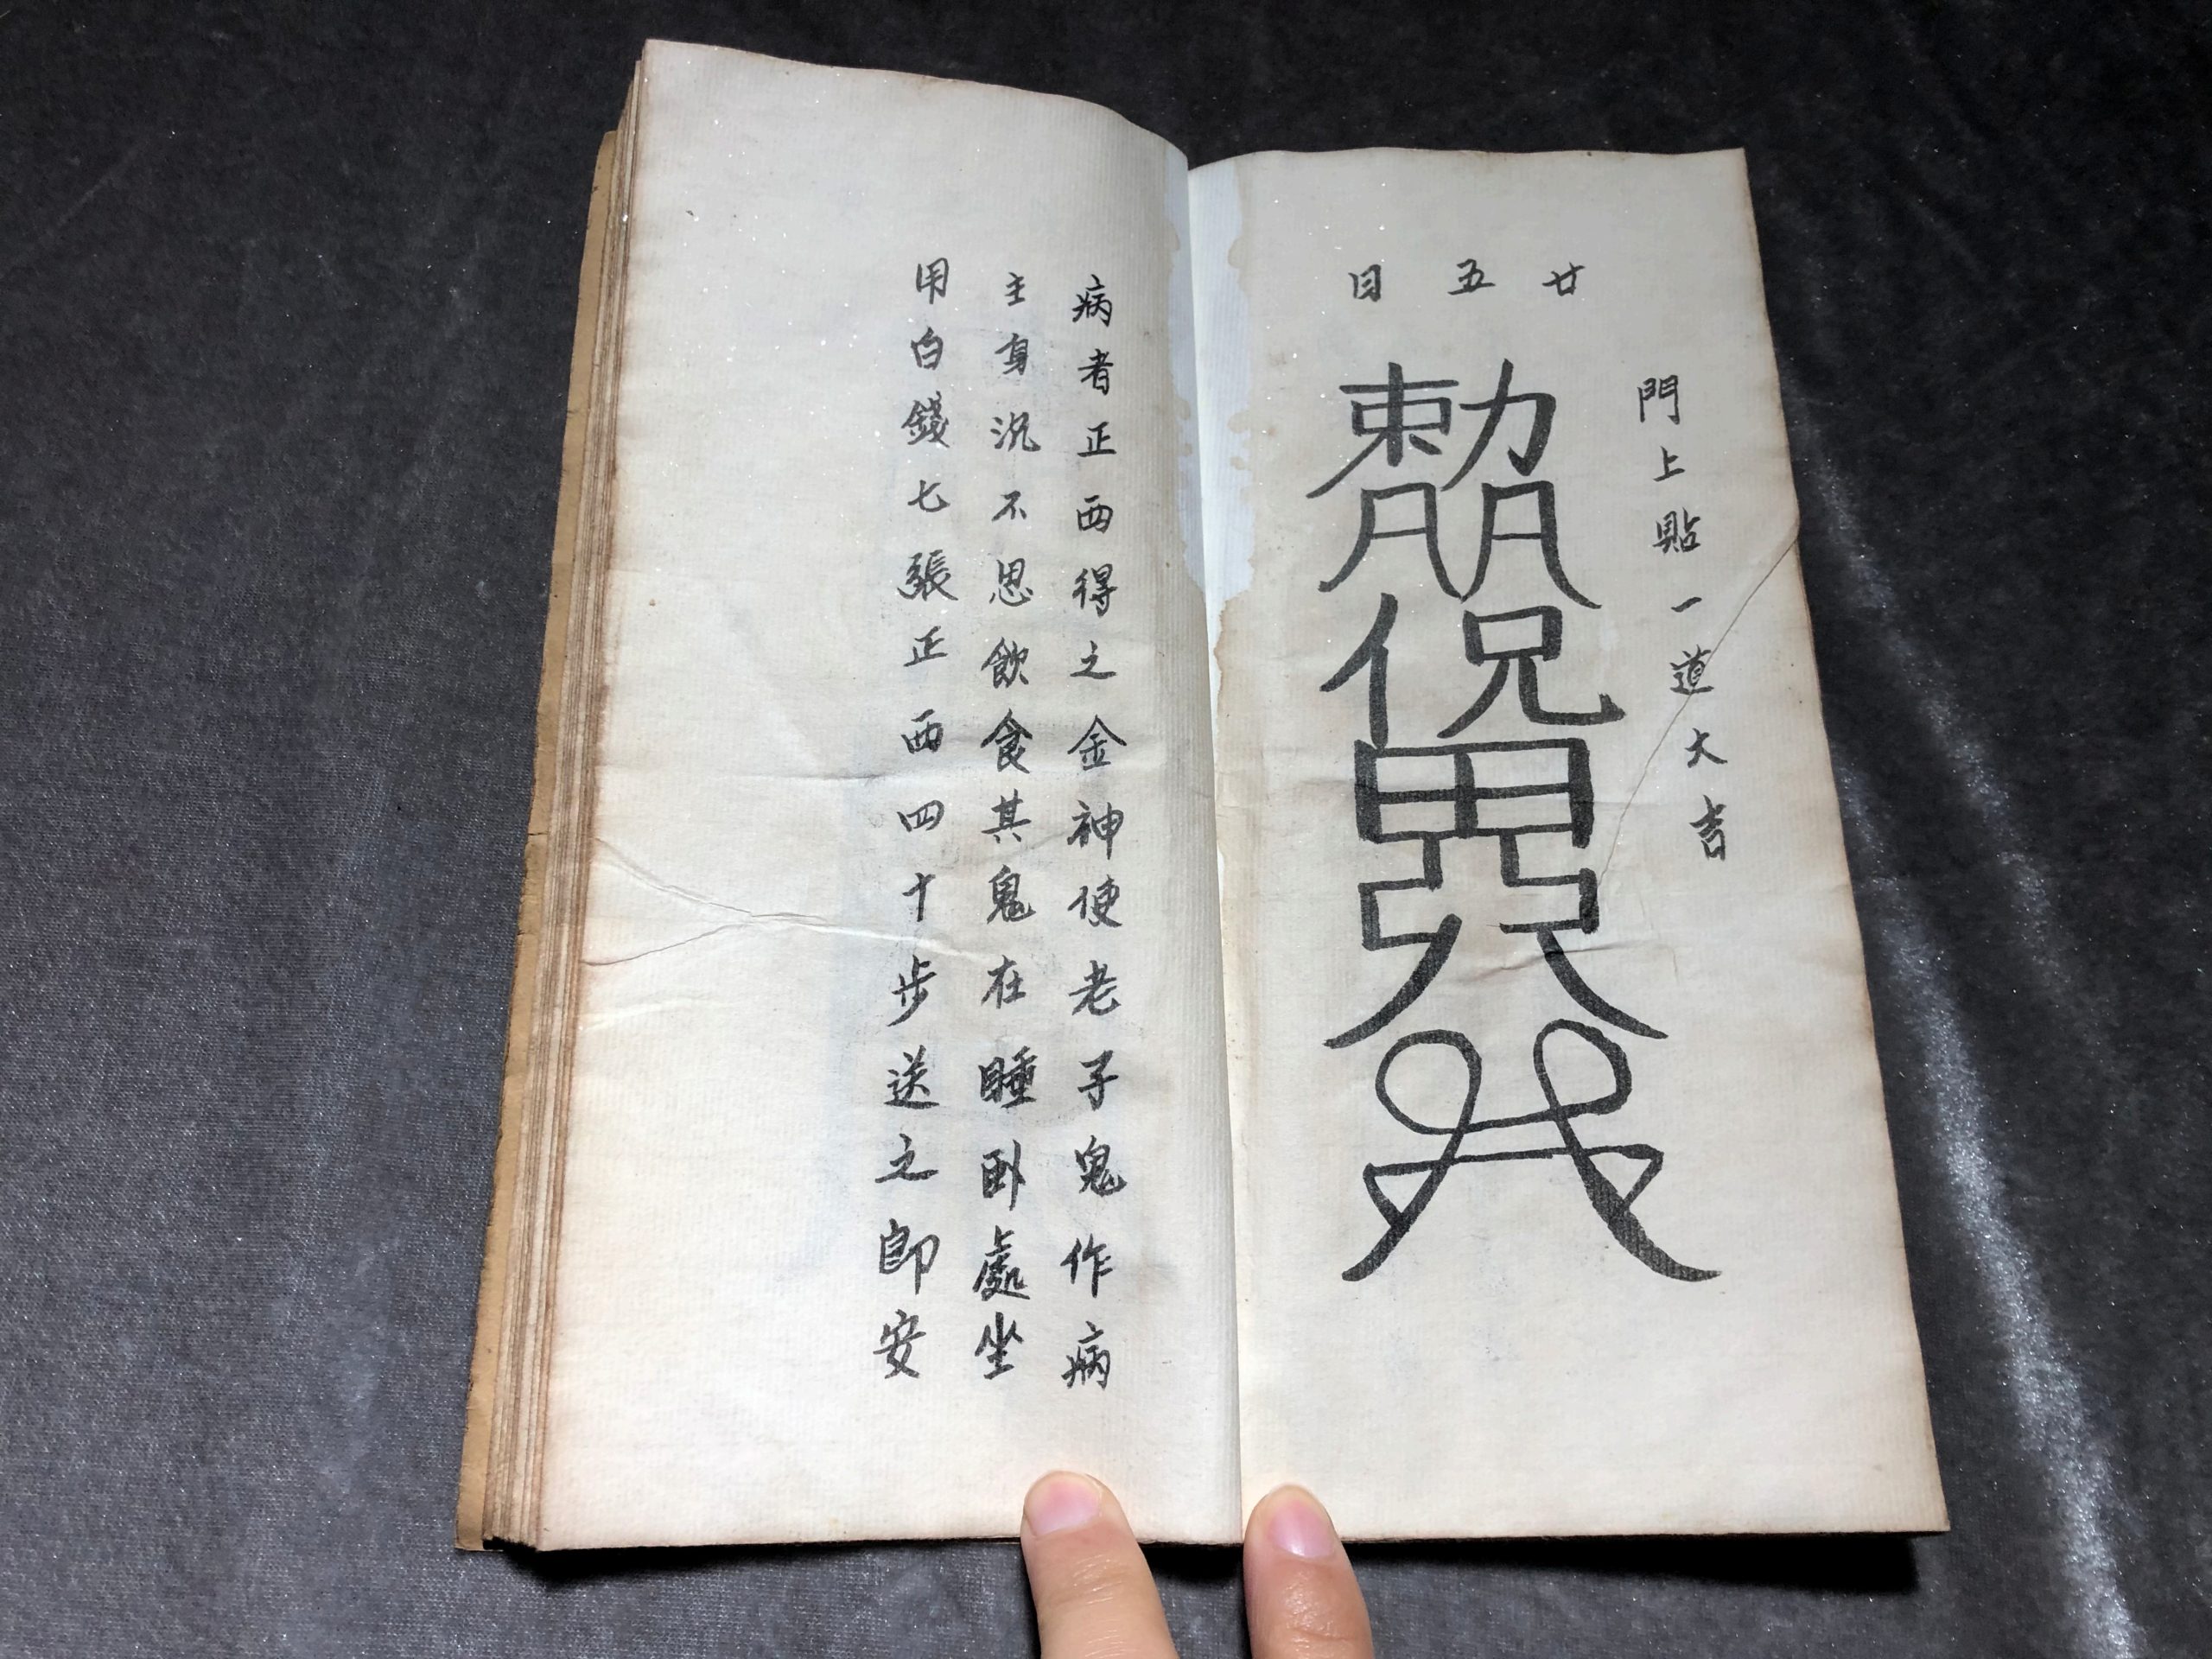 廿五日
門上貼一道大吉
病者正西得之金神使老子鬼作病
主身沉不思飲食其鬼在睡卧處坐
用白錢七張正西四十步送之即安